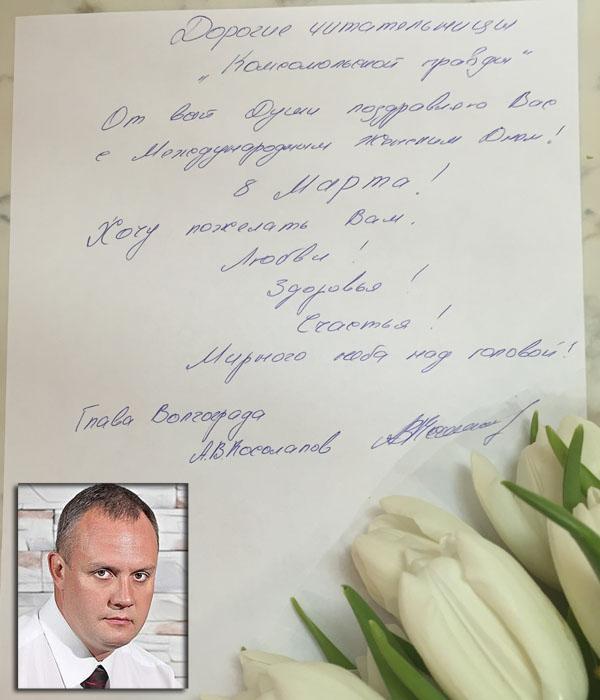 Дорогие читательницы
"Комсомольской правды"
От всей Души поздравляю Вас
с Международным Женским Днем!
8 Марта!
Хочу пожелать Вам.
Любви!
Здоровья!
Счастья!
Мирного неба над головой!
Глава Волгограда
А.В Косолапов